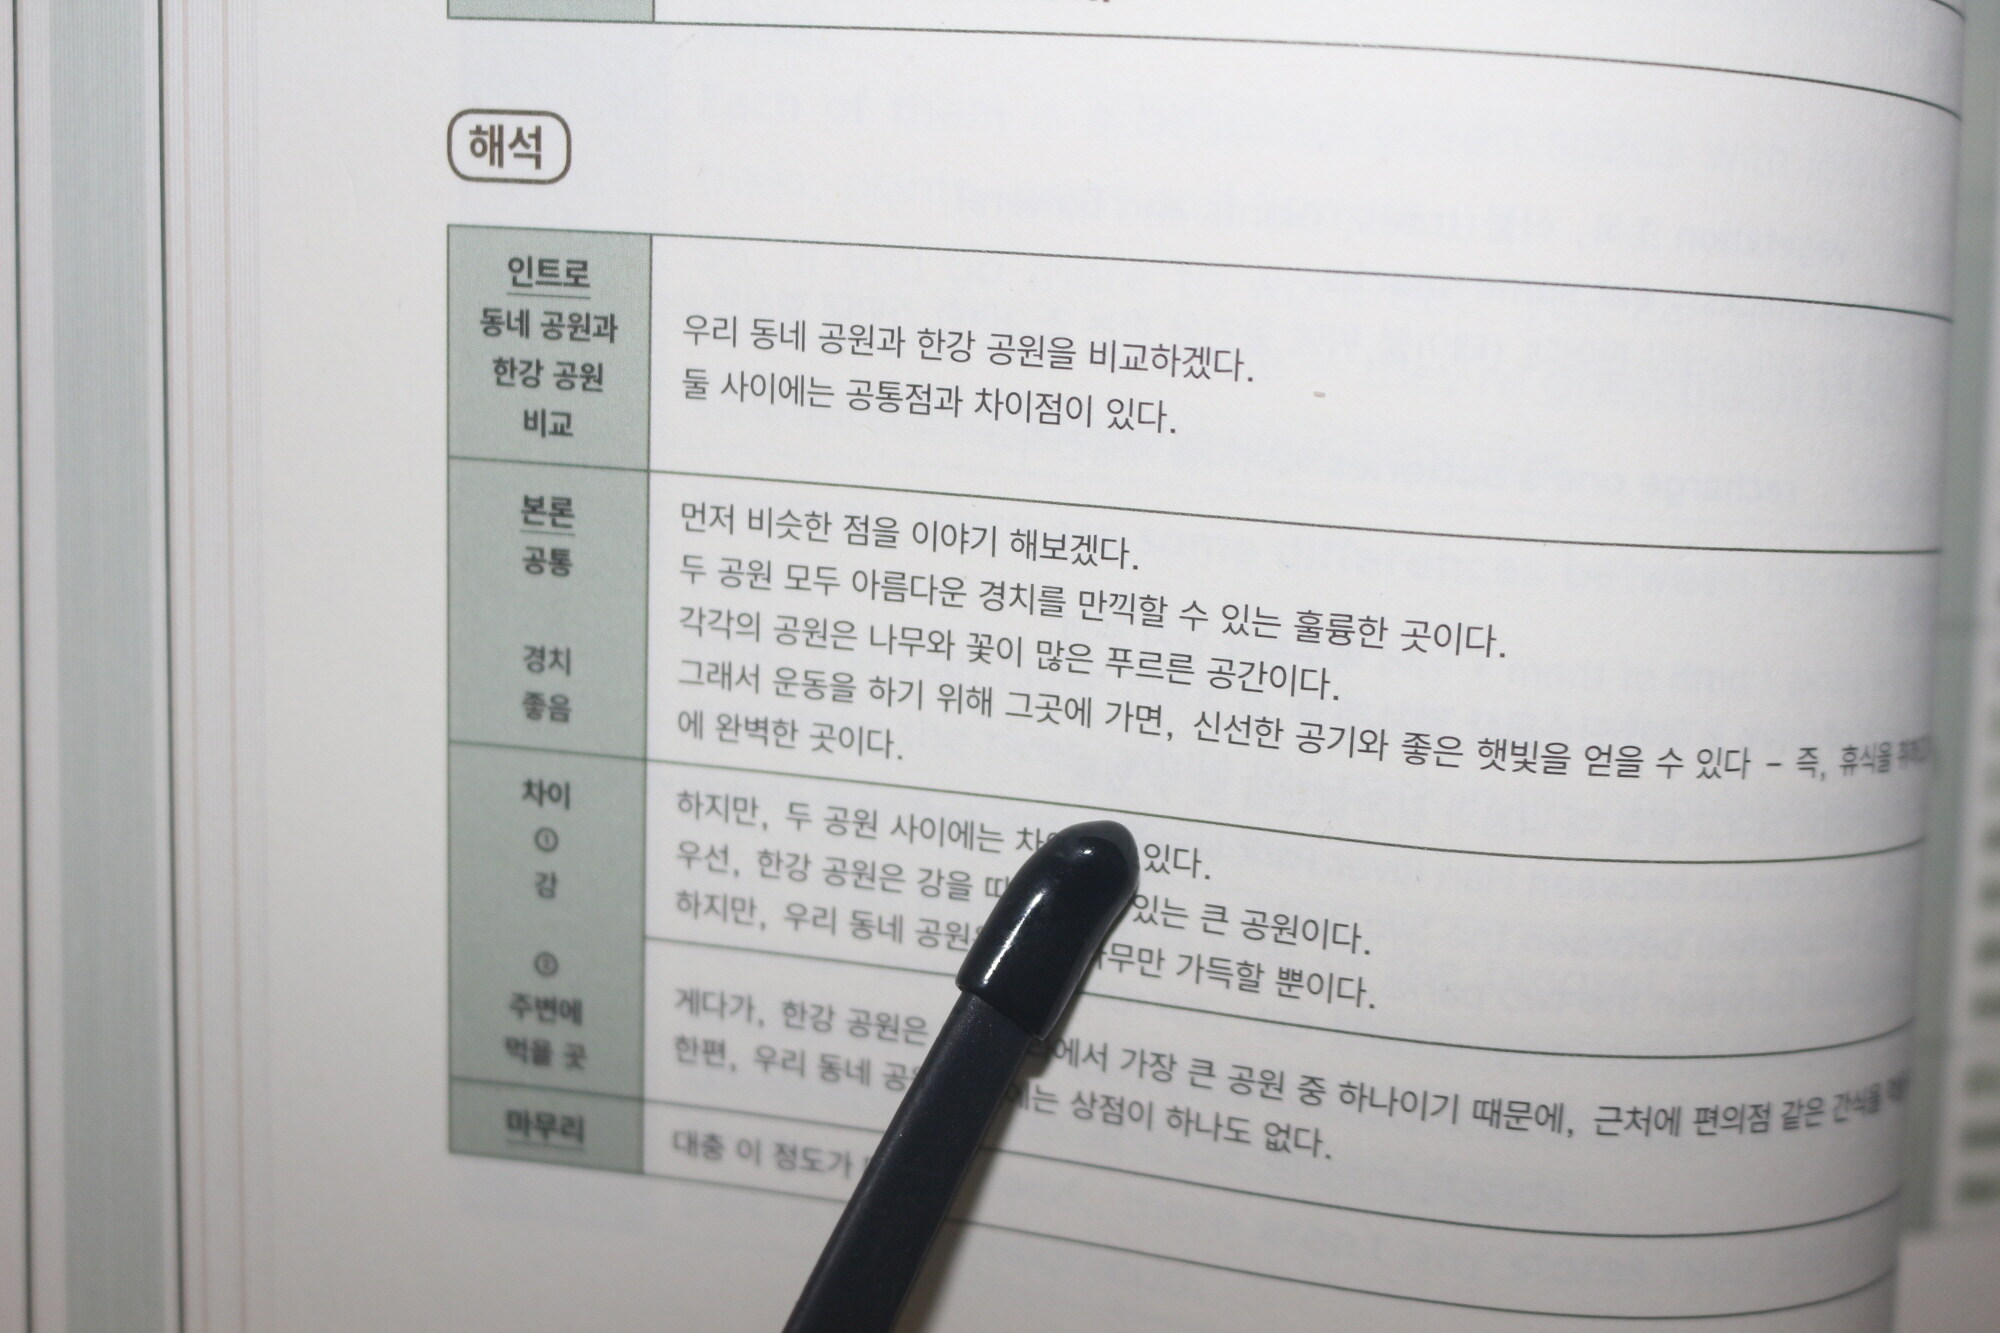 해석
인트로
동네 공원과
한강 공원
비교
우리 동네 공원과 한강 공원을 비교하겠다.
둘 사이에는 공통점과 차이점이 있다.
본론
공통
경치
좋음
먼저 비슷한 점을 이야기 해보겠다.
두 공원 모두 아름다운 경치를 만끽할 수 있는 훌륭한 곳이다.
각각의 공원은 나무와 꽃이 많은 푸르른 공간이다.
그래서 운동을 하기 위해 그곳에 가면, 신선한 공기와 좋은 햇빛을 얻을 수 있다 – 즉, 휴식을
에 완벽한 곳이다.
차이
①
강
하지만, 두 공원 사이에는 있다.
우선, 한강 공원은 강을 있는 큰 공원이다.
하지만, 우리 동네 가득할 뿐이다.
②
주변에
먹을 곳
게다가, 한강 공원은 가장 큰 공원 중 하나이기 때문에, 근처에 편의점 같은 간식을
한편, 우리 동네 상점이 하나도 없다.
마무리
대충 이 정도가